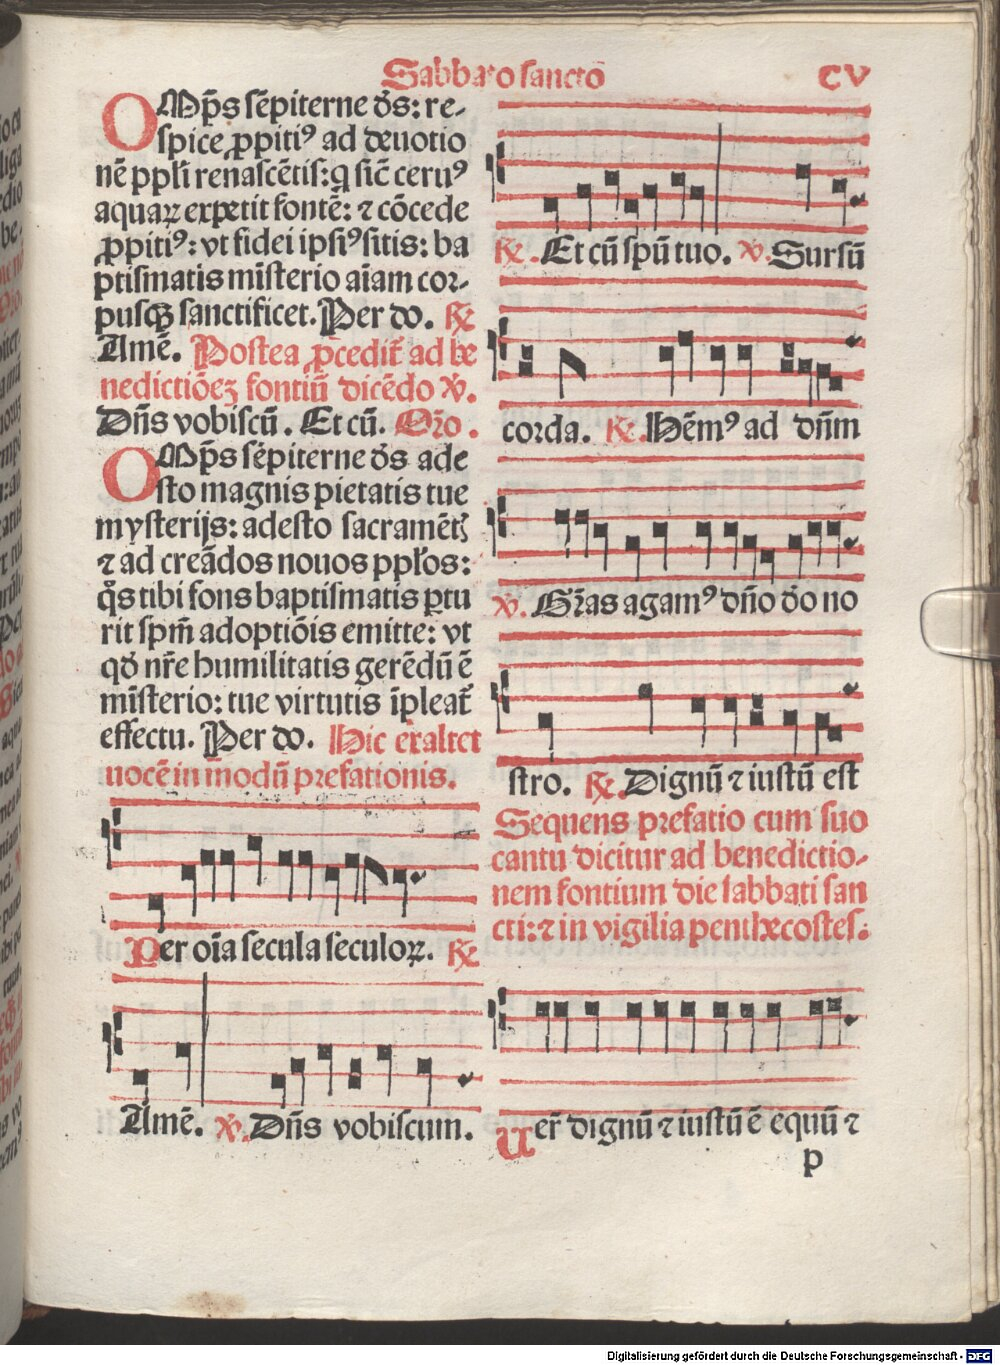 Sabbato sancto CV
OMp̄s sēpiterne ds̄: re-
spice ꝓpitiꝰ ad deuotio
nē ppl̄i renascētis: q̄ sic̄ ceruꝰ
aquaꝝ expetit fontē: ⁊ cōcede
ꝓpitiꝰ: vt fidei ipsiꝰ sitis: ba
ptismatis mīsterio aīam cor-
pusqꝫ sanctificet. Per do. ℞
Amē. Postea ꝓcedit̄ ad be
nedictiōeꝫ fontiū dicēdo ℣.
Dn̄s vobiscū. Et cū. Oŕo.
OMp̄s sēpiterne ds̄ ade
sto magnis pietatis tue
mysterijs: adesto sacramēt̄
⁊ ad creādos nouos ppl̄os:
q̄s tibi fons baptismatis ꝑtu
rit spm̄ adoptiōis emitte: vt
qd̄ nr̄e humilitatis gerēdū ē
mīsterio: tue virtutis īpleat̄
effectu. Per do. Hic exaltet
uocē in modū prefationis.
Per oīa secula seculoꝝ. ℞
Amē. ℣. Dn̄s vobiscum.
℞. Et cū spū tuo. ℣. Sursū
corda. ℞. Hēmꝰ ad dn̄m
℣. Gr̄as agamꝰ dn̄o do no
stro. ℞. Dignū ⁊ iustū est
Sequens prefatio cum suo
cantu dicitur ad benedictio-
nem fontium die sabbati san
cti: ⁊ in vigilia penthecostes.
Uer̄ dignū ⁊ iustū ē equū ⁊
p
Digitalisierung gefördert durch die Deutsche Forschungsgemeinschaft - DFG